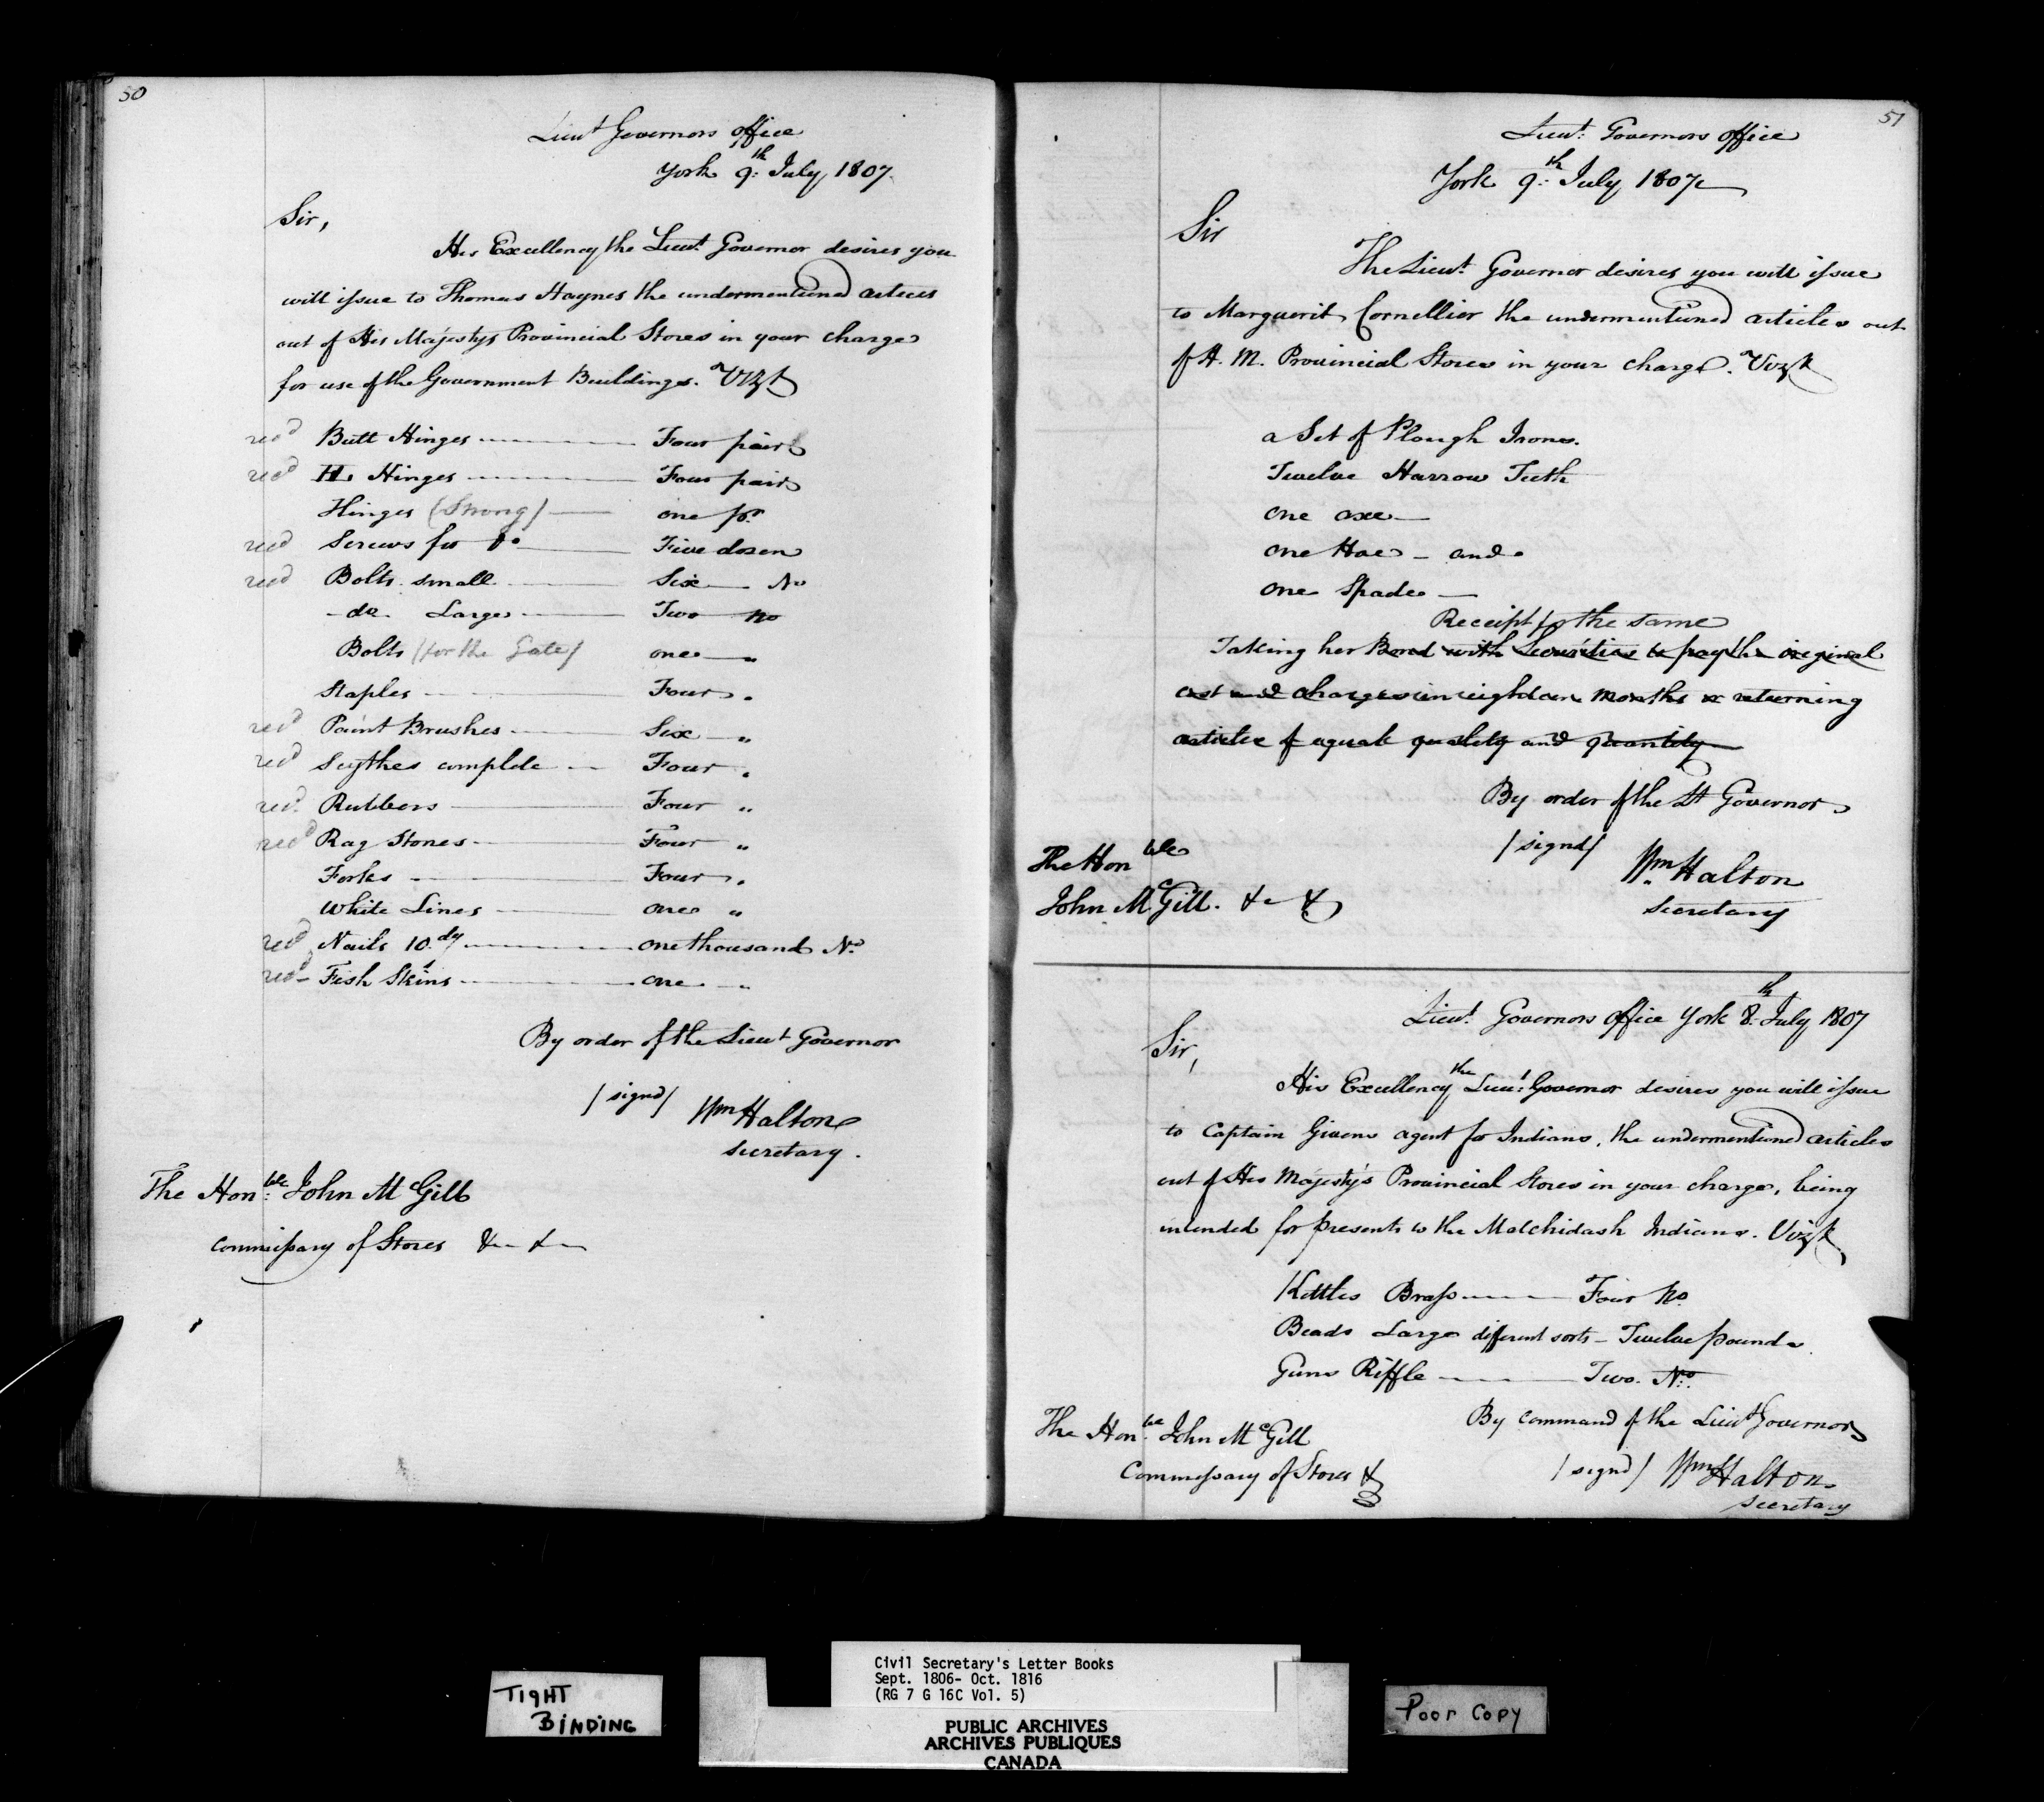 50
Lieut Governors office
York 9th July, 1807.
Sir,
His Excellency the Lieut Governor desires you
will issue to Thomas Haynes the undermentioned articles
out of His Majestys Provincial Stores in your charge
for use of the Government Buildings. Vizt
recd Butt Hinges Four pair
recd HL Hinges Four pair
Hinges (Strong) one pr
recd Screws for do Five dozen
recd Bolts small Six No
do Large Two no
Bolts (for the Gate) one "
Staples Four "
recd Paint Brushes Six "
recd Scythes complete Four "
recd Rubbers Four "
recd Rag Stones Four "
Forks Four "
White Lines one "
recd Nails 10dy one thousand No
recd Fish Skins one "
By order of the Lieut Governor
/signd/ Wm Halton
Secretary.
The Honble John McGill
Commissary of Stores &c &c
51
Lieut Governors office
York 9th July, 1807
Sir
The Lieut Governor desires you will issue
to Marguerit Cornellier the undermentioned articles out
of H. M. Provincial Stores in your charge. Vizt
a Set of Plough Irons.
Twelve Harrow Teeth
one axe
one Hoe - and
one Spade
Receipt for the same
Taking her Bond with Securities to pay the original
cost and charges in eighteen months or returning
articles of equal quality and quantity
By order of the Lt Governor
/signd/ Wm Halton
Secretary
The Honble
John McGill. &c &c
Lieut Governors Office York 8th July 1807
Sir,
His Excellency the Lieut Governor desires you will issue
to Captain Givens agent for Indians, the undermentioned articles
out of His Majesty's Provincial Stores in your charge, being
intended for presents to the Matchidash Indians. Vizt
Kettles Brass Four No
Beads Large different sorts - Twelve pounds
Guns Riffle Two. No.
By command of the Lieut Governor
/signd/ Wm Halton
Secretary
The Honble John McGill
Commissary of Stores &c
TIGHT
BINDING
Civil Secretary's Letter Books
Sept. 1806- Oct. 1816
(RG 7 G 16C Vol. 5)
PUBLIC ARCHIVES
ARCHIVES PUBLIQUES
CANADA
Poor Copy